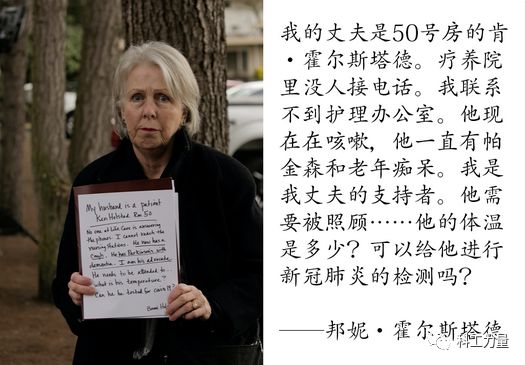 My husband is a patient
Ken Holstad Rm 50
No one at Life Care is answering
the phones. I cannot reach the
nursing stations. He now has a
cough. He has Parkinson's with
dementia. I am his advocate.
He needs to be attended to...
what is his temperature?
Can he be tested for covid 19?
我的丈夫是50号房的肯
·霍尔斯塔德。疗养院
里没人接电话。我联系
不到护理办公室。他现
在在咳嗽，他一直有帕
金森和老年痴呆。我是
我丈夫的支持者。他需
要被照顾……他的体温
是多少？可以给他进行
新冠肺炎的检测吗？
——邦妮·霍尔斯塔德
科工力量